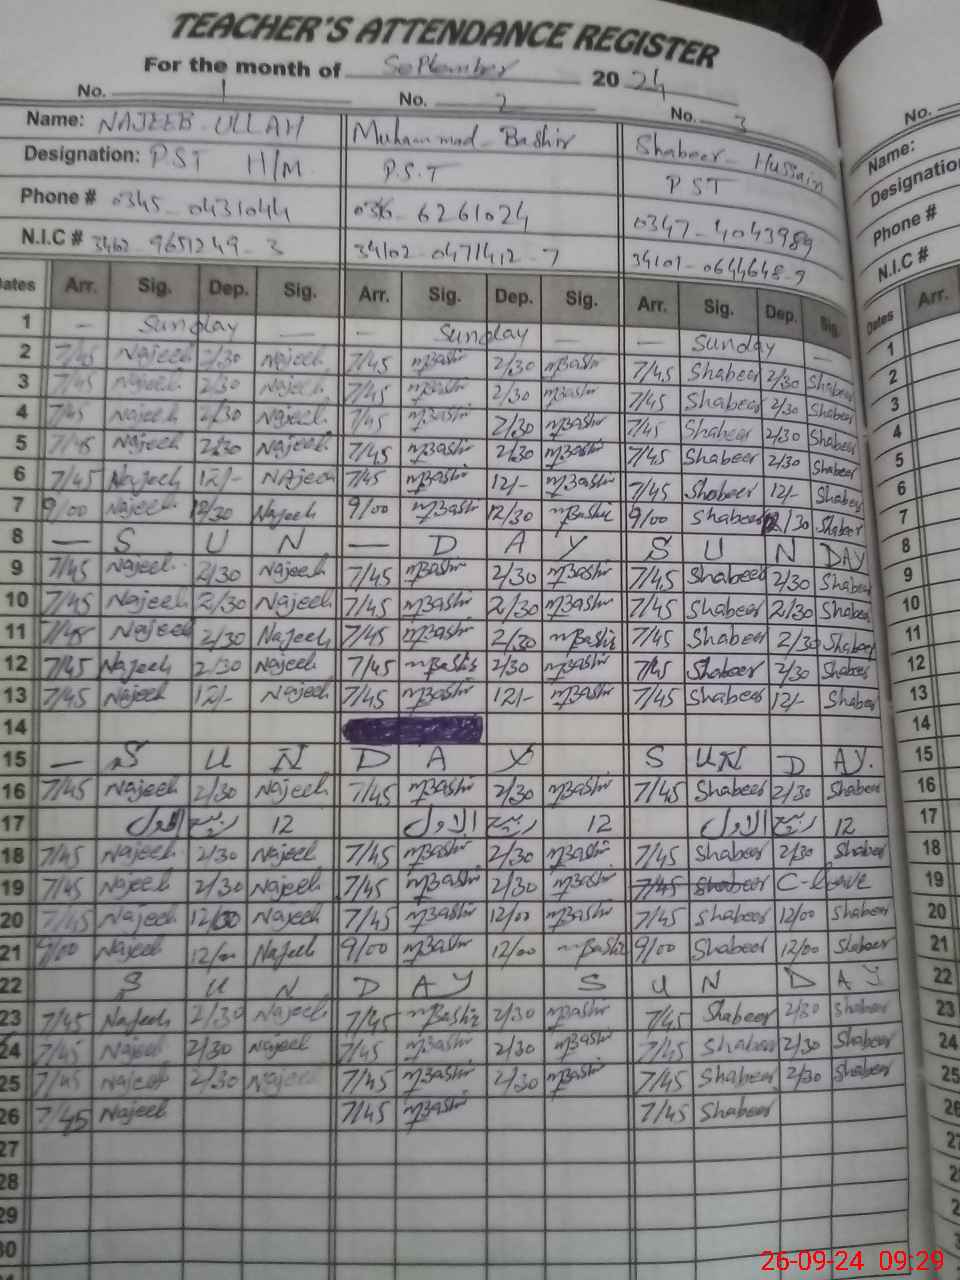 TEACHER'S ATTENDANCE REGISTER
For the month of September 2024
No. 1 No. 2 No. 3 No.
Name: NAJEEB ULLAH Muhammad Bashir Shabeer Hussain Name:
Designation: PST H/M P.S.T PST Designation
Phone # 0345-0431044 6261024 0347-4043989 Phone #
N.I.C # 9651249-3 34102-0471412-7 34101-0644648-9 N.I.C #
Dates Arr. Sig. Dep. Sig. Arr. Sig. Dep. Sig. Arr. Sig. Dep. Sig. Dates Arr.
1 — Sunday — — Sunday — — Sunday — 1
2 7/45 Najeeb 2/30 Najeeb 7/45 mBashir 2/30 mBashir 7/45 Shabeer 2/30 Shabeer 2
3 7/45 Najeeb 2/30 Najeeb 7/45 mBashir 2/30 mBashir 7/45 Shabeer 2/30 Shabeer 3
4 7/45 Najeeb 2/30 Najeeb 7/45 mBashir 2/30 mBashir 7/45 Shabeer 2/30 Shabeer 4
5 7/45 Najeeb 2/30 Najeeb 7/45 mBashir 2/30 mBashir 7/45 Shabeer 2/30 Shabeer 5
6 7/45 Najeeb 12/- NAjeeb 7/45 mBashir 12/- mBashir 7/45 Shabeer 12/- Shabeer 6
7 9/00 Najeeb 12/30 Najeeb 9/00 mBashir 12/30 mBashir 9/00 Shabeer 12/30 Shabeer 7
8 — S U N — D A Y S U N DAY 8
9 7/45 Najeeb 2/30 Najeeb 7/45 mBashir 2/30 mBashir 7/45 Shabeer 2/30 Shabeer 9
10 7/45 Najeeb 2/30 Najeeb 7/45 mBashir 2/30 mBashir 7/45 Shabeer 2/30 Shabeer 10
11 7/45 Najeeb 2/30 Najeeb 7/45 mBashir 2/30 mBashir 7/45 Shabeer 2/30 Shabeer 11
12 7/45 Najeeb 2/30 Najeeb 7/45 mBashir 2/30 mBashir 7/45 Shabeer 2/30 Shabeer 12
13 7/45 Najeeb 12/- Najeeb 7/45 mBashir 12/- mBashir 7/45 Shabeer 12/- Shabeer 13
14 14
15 — S U N D A Y S U N D AY. 15
16 7/45 Najeeb 2/30 Najeeb 7/45 mBashir 2/30 mBashir 7/45 Shabeer 2/30 Shabeer 16
17 12 ربیع الاول 12 ربیع الاول 12 ربیع الاول 17
18 7/45 Najeeb 2/30 Najeeb 7/45 mBashir 2/30 mBashir 7/45 Shabeer 2/30 Shabeer 18
19 7/45 Najeeb 2/30 Najeeb 7/45 mBashir 2/30 mBashir 7/45 Shabeer C-Leave 19
20 7/45 Najeeb 12/00 Najeeb 7/45 mBashir 12/00 mBashir 7/45 Shabeer 12/00 Shabeer 20
21 9/00 Najeeb 12/00 Najeeb 9/00 mBashir 12/00 mBashir 9/00 Shabeer 12/00 Shabeer 21
22 S U N D A Y S U N D A Y 22
23 7/45 Najeeb 2/30 Najeeb 7/45 mBashir 2/30 mBashir 7/45 Shabeer 2/30 Shabeer 23
24 7/45 Najeeb 2/30 Najeeb 7/45 mBashir 2/30 mBashir 7/45 Shabeer 2/30 Shabeer 24
25 7/45 Najeeb 2/30 Najeeb 7/45 mBashir 2/30 mBashir 7/45 Shabeer 2/30 Shabeer 25
26 7/45 Najeeb 7/45 mBashir 7/45 Shabeer 26
27
28
29
30
26-09-24 09:29